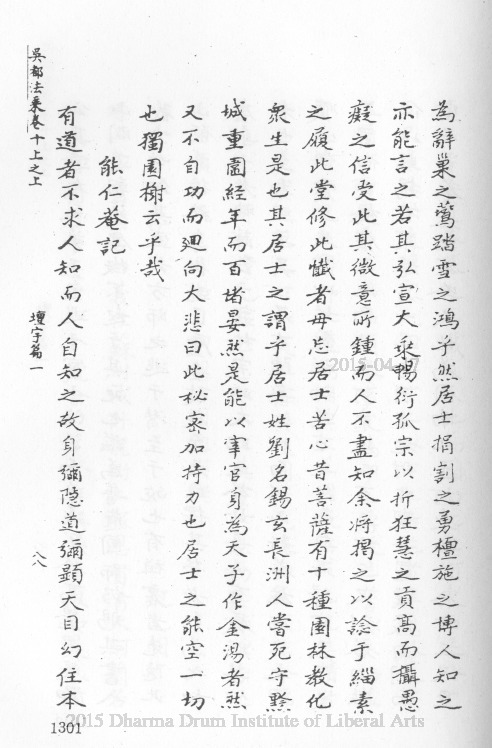 吳都法乘卷十上之上
壇宇篇一
八八
為辭巢之鶯踏雪之鴻乎然居士捐割之勇檀施之博人知之
亦能言之若其弘宣大乘暢衍孤宗以折狂慧之貢高而攝愚
癡之信受此其微意所鍾而人不盡知余將揭之以諗于緇素
之履此堂修此懺者毋忘居士苦心昔菩薩有十種園林教化
衆生是也其居士之謂乎居士姓劉名錫玄長洲人嘗死守黔
城重圍經年而百堵晏然是能以宰官身為天子作金湯者然
又不自功而迴向大悲曰此秘密加持力也居士之能空一切
也獨園榭云乎哉
能仁菴記
有道者不求人知而人自知之故身彌隐道彌顯天目幻住本
1301
2015-04-07
2015 Dharma Drum Institute of Liberal Arts